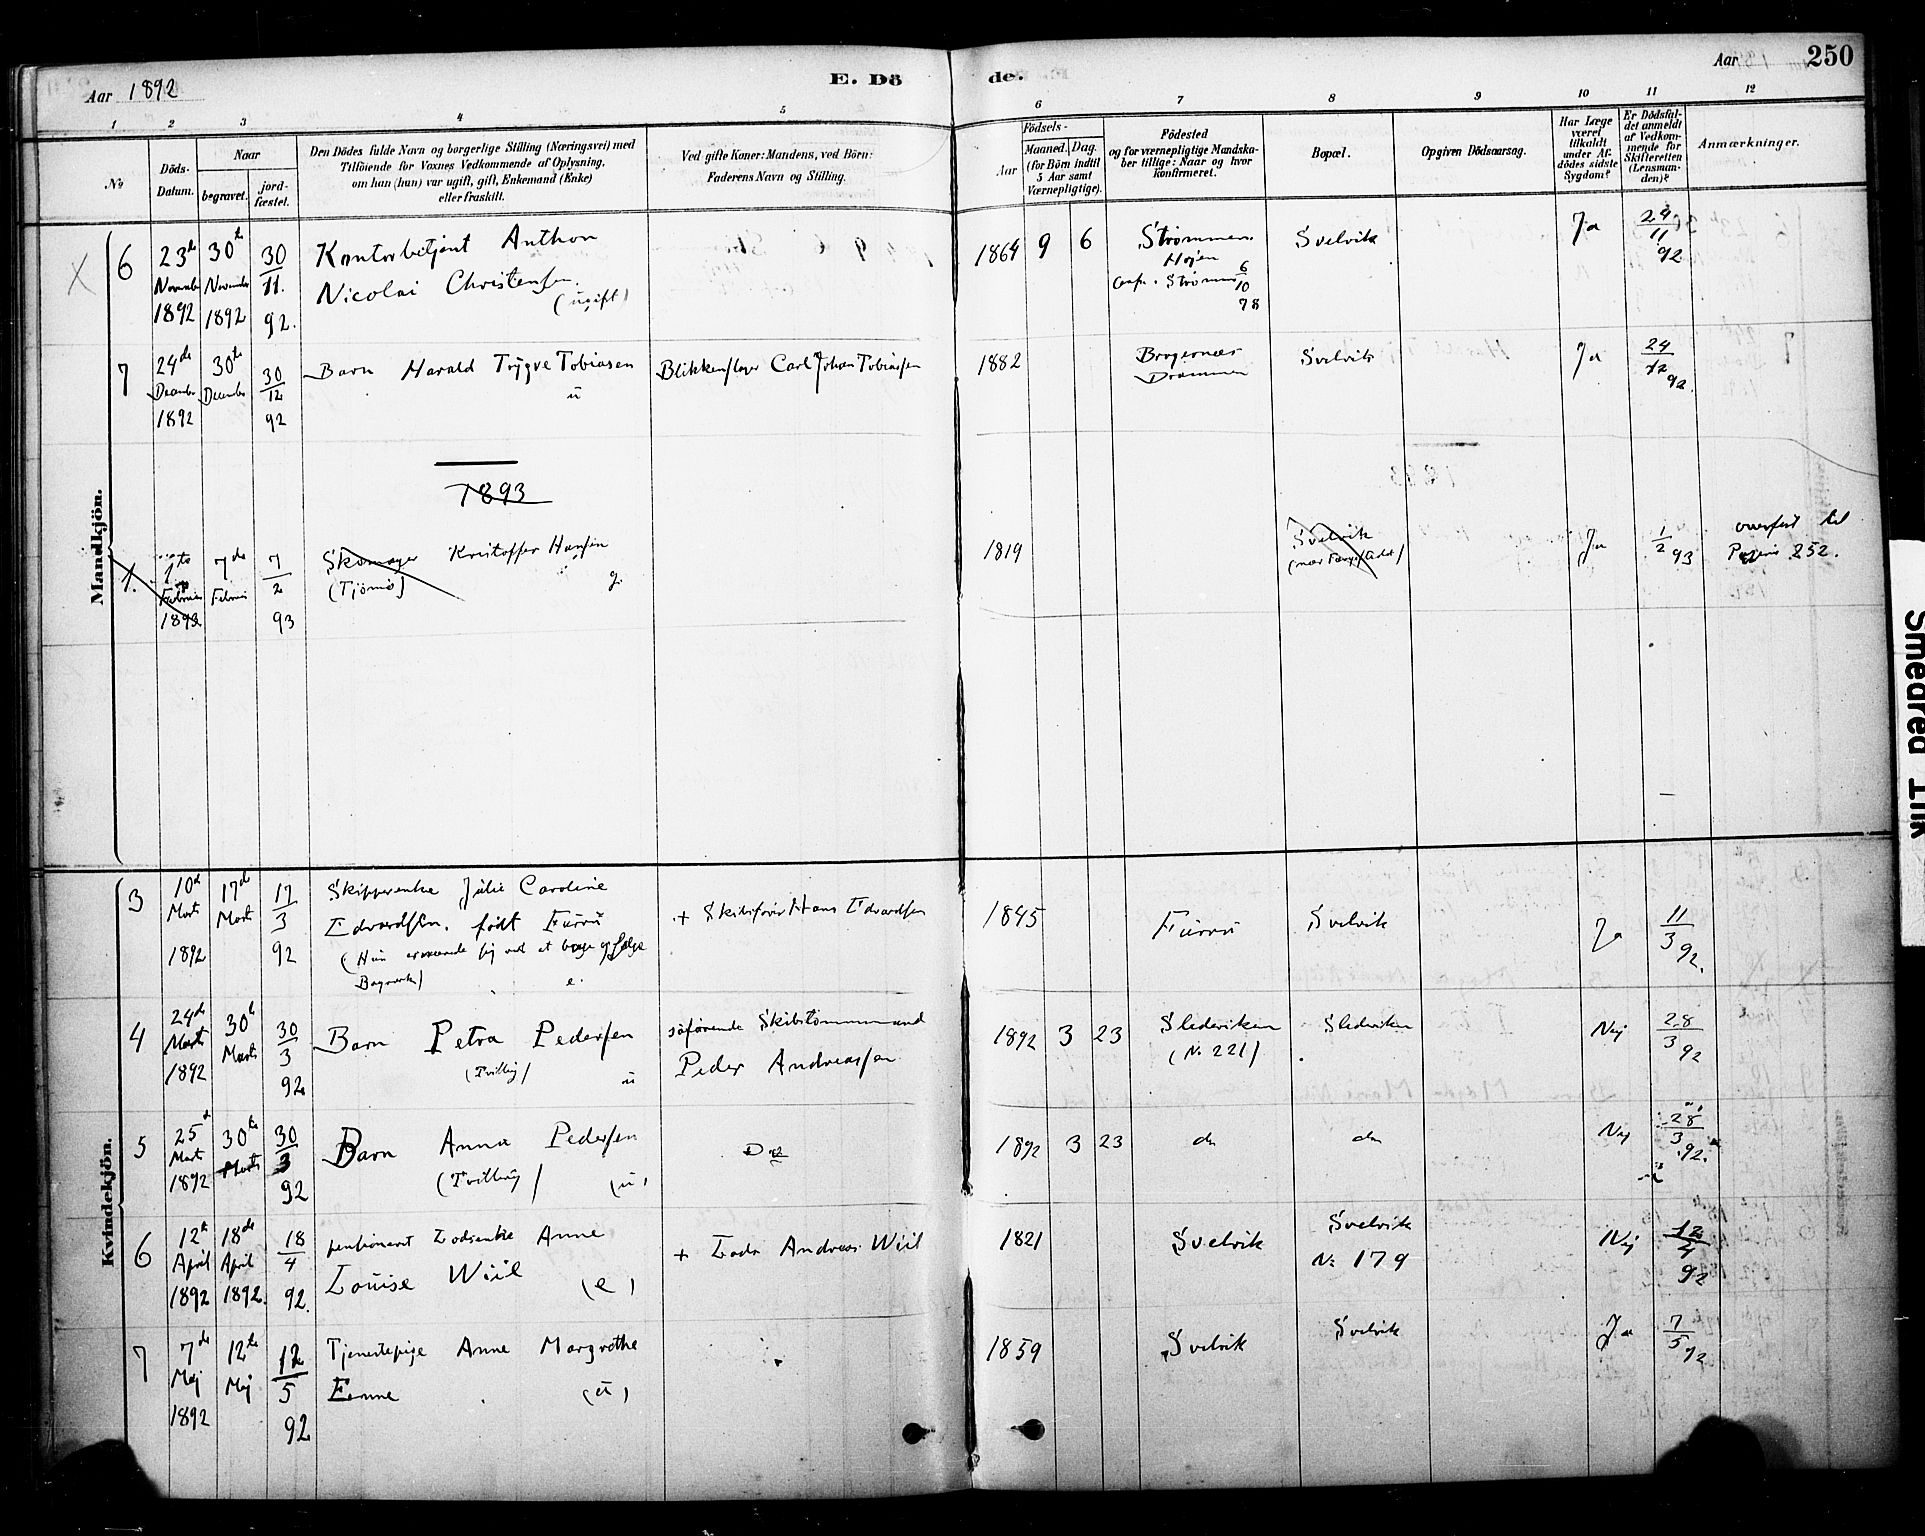 Aar 1892
E. Dö
de.
Aar
250
1 2 3 4 5 6 7 8 9 10 11 12
No
Döds-
Datum.
Naar
begravet.
jord-
fæstet.
Den Dödes fulde Navn og borgerlige Stilling (Næringsvei) med
Tilföiende for Voxnes Vedkommende af Oplysning,
om han (hun) var ugift, gift, Enkemand (Enke)
eller fraskilt.
Ved gifte Koner: Mandens, ved Börn:
Faderens Navn og Stilling.
Födsels-
Aar
Maaned. Dag.
(for Börn indtil
5 Aar samt
Værnepligtige).
Födested
og for værnepligtige Mandska-
ber tillige: Naar og hvor
konfirmeret.
Bopæl.
Opgiven Dödsaarsag.
Har Læge
været
tilkaldt
under Af-
dödes sidste
Sygdom?
Er Dödsfal-
det anmeldt
af Vedkom-
mende for
Skifteretten
(Lensman-
den)?
Anmærkninger.
Mandkjön.
X 6
23de
November
1892
30te
November
1892
30
11.
92.
Kontorbetjent Anthon
Nicolai Christensen.
(ugift)
1864 9 6
Strømmen
Højen
Conf. Strømm 6
10
78
Svelvik
Ja
24
11
92
7
24de
December
1892
30te
December
30
12
92
Barn Harald Trygve Tobiasen
u
Blikkenslager Carl Johan Tobiassen
1882
Bragernæs
Drammen
Svelvik
Ja
24
12
92.
1893
1.
1te
Februar
1893
7de
Februar
7
2
93
Skomager Kristoffer Hansen
(Tjömö) g.
1819
Svelvik
Ja
1
2 93
overført til
Pagina 252.
Kvindekjön.
3
10de
Marts
1892
17de
Marts
17
3
92
Skipperenke Julie Caroline
Edvardsen, født Furru
(Hun ernærede sig ved at bage og sælge
Bagværk) e.
+ Skibsfører Hans Edvardsen
1845
Furru
Svelvik
Ja
11
3 92.
4
24de
Marts
1892
30te
Marts
30
3
92
Barn Petra Pedersen
(Tvilling) u
søfarende Skibstømmermand
Peder Andreassen
1892 3 23
Slederiken
(No 221)
Slederiken
Nej
28
3 92
5
25de
Marts
1892
30te
Marts
30
3
92
Barn Anna Pedersen
(Tvilling) (u)
Do
1892 3 23
do
do
Nej
28
3
92.
6
12te
April
1892
18de
April
1892.
18
4
92.
pensioneret Lodsenke Anne
Louise Wiil (e)
+ Lods Andreas Wiil
1821
Svelvik
Svelvik
No 179
Nej
12
4
92
7
7de
Mej
1892
12te
Mej
12
5
92
Tjenestepige Anne Margrethe
(u)
1859
Svelvik
Svelvik
Ja
7
5 92
Smedred Ink